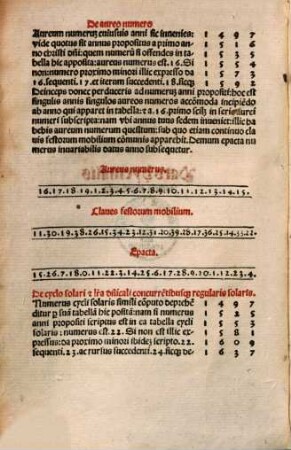 De aureo numero
Aureum numerum cuiusuis anni sic inuenies: 1 4 9 7
vide quotus sit annus propositus a primo an- 1 5 1 6
no christi: quem numerum si offendes in ta- 1 5 3 5
bella hic apposita: aureus numerus est .16. Si 1 5 5 4
non: numero proximo minori illic expresso da 1 5 7 3
.16. sequenti .17. et iterum succedenti .18. sicque 1 5 9 2
deinceps donec perueneris ad numerum anni propositi: hoc est
singulis annis singulos aureos numeros accomoda incipiendo
ab anno qui apparet in tabella: et .16. primo
numeri subscripta: nam vbi annus tuus sedem inuenerit: illic ha
bebis aureum numerum quesitum: sub quo etiam continuo cla
ues festorum mobilium comunis apparebit. Demum epacta nu
merus inuariabilis datus anno subsequetur.
Aureus numerus.
16. 17. 18. 19. 1. 2. 3. 4. 5. 6. 7. 8. 9. 10. 11. 12. 13. 14. 15.
Claues festorum mobilium.
11. 30. 19. 38. 26. 15. 34. 23. 12. 31. 20. 39. 28. 17. 36. 25. 14. 33. 22.
Epacta.
15. 26. 7. 18. 0. 11. 22. 3. 14. 25. 6. 17. 28. 9. 20. 1. 12. 23. 4.
De cyclo solari et lra dnicali concurrentibusque regularis solaris.
Numerus cycli solaris simili computo deprehe 1 4 9 7
ditur per suam tabella hic positam: nam si numerus 1 5 2 5
anni propositi scriptus est in ea tabella cycli 1 5 5 3
solaris: numerus est .22. Si non est illic ex- 1 5 8 1
pressus: da proximo minori ibidem scripto .22. 1 6 0 9
sequenti .23. ac rursus succedenti .24. sicque de- 1 6 3 7